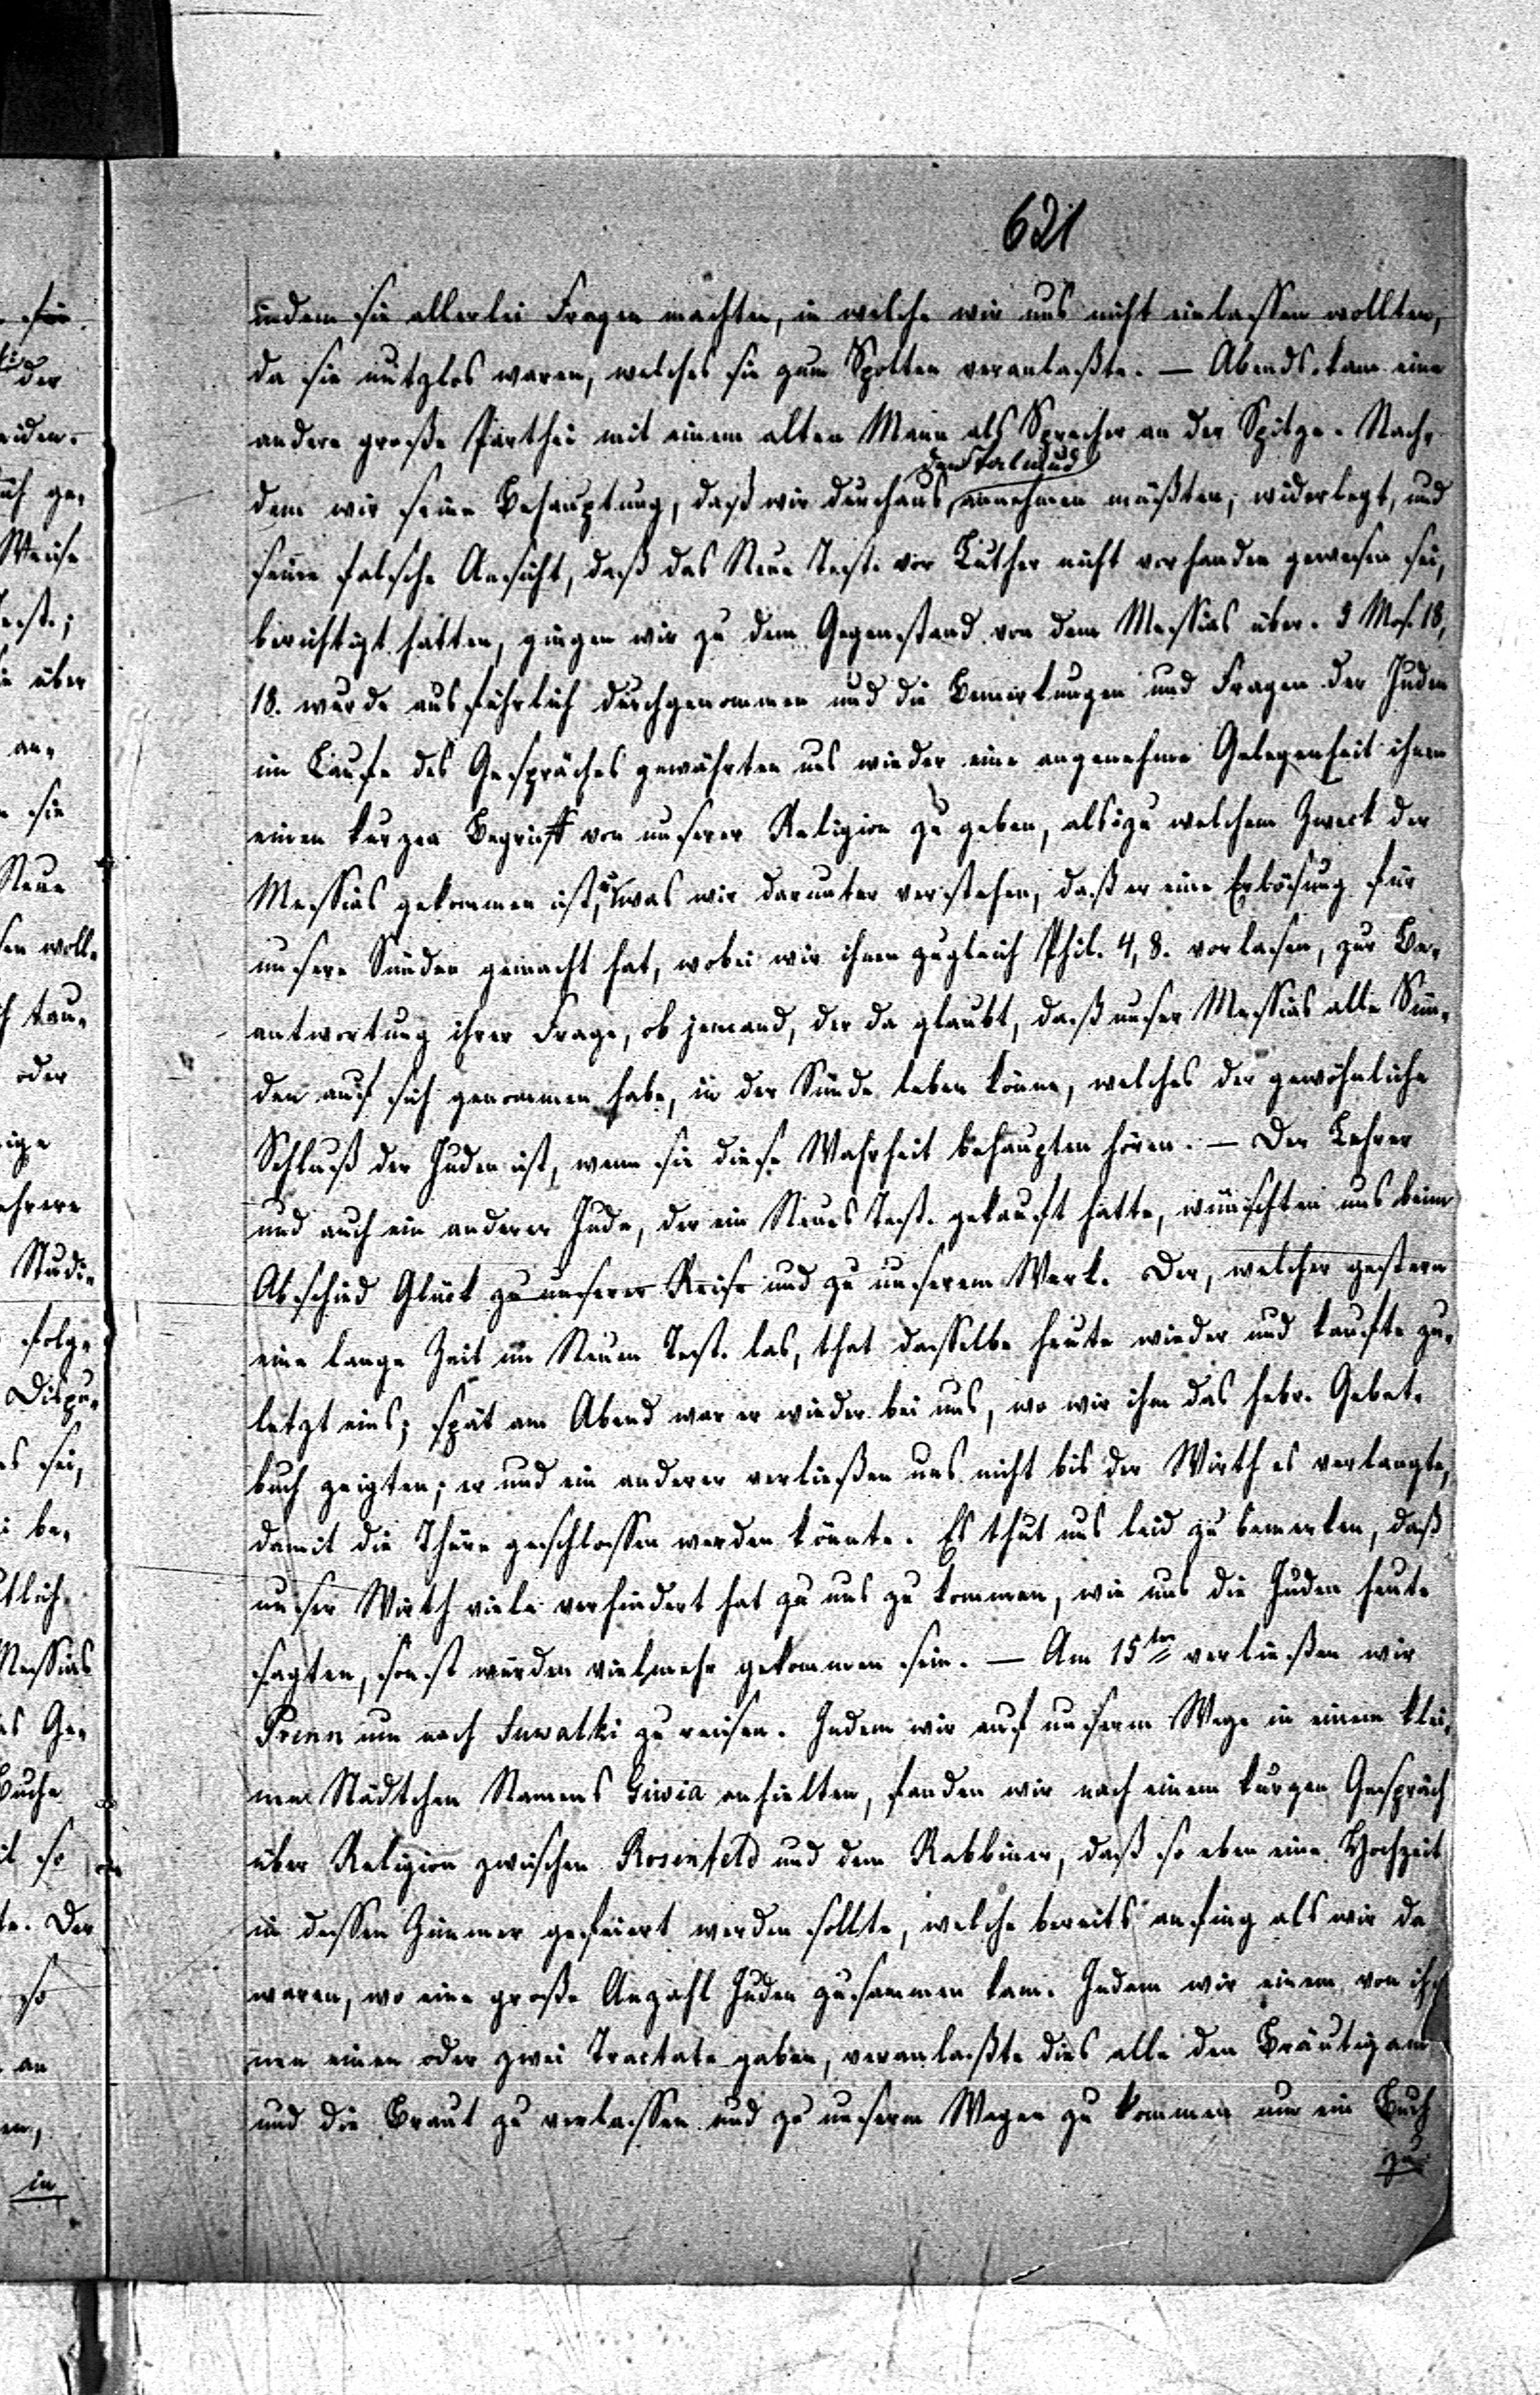 621
indem sie allerlei Fragen machten, in welche wir uns nicht einlassen wollten,
da sie nutzlos waren, welches sie zum Spotten veranlaßte. — Abends kam eine
andere große Parthei mit einem alten Mann als Sprecher an der Spitze. Nach-
dem wir seine Behauptung, daß wir durchaus den Talmud annehmen müßten, widerlegt, und
seine falsche Ansicht, daß das Neue Test. vor Luther nicht vorhanden gewesen sei,
berichtigt hatten, gingen wir zu dem Gegenstand von dem Messias über. 5 Mos. 18,
18. wurde ausführlich durchgenommen und die Bemerkungen und Fragen der Juden
im Laufe des Gespräches gewährten uns wieder eine angenehme Gelegenheit ihnen
einen kurzen Begriff von unserer Religion zu geben, als: zu welchem Zweck der
Messias gekommen ist, u. was wir darunter verstehen, daß er eine Erlösung für
unsere Sünden gemacht hat, wobei wir ihnen zugleich Phil. 4, 8. vorlasen, zur Be-
antwortung ihrer Frage, ob jemand, der da glaubt, daß unser Messias alle Sün-
den auf sich genommen habe, in der Sünde leben könne, welches der gewöhnliche
Schluß der Juden ist, wenn sie diese Wahrheit behaupten hören. — Der Lehrer
und auch ein anderer Jude, der ein Neues Test. gekauft hatte, wünschten uns beim
Abschied Glück zu unserer Reise und zu unserem Werk. Der, welcher gestern
eine lange Zeit im Neuen Test. las, that dasselbe heute wieder und kaufte zu-
letzt eins; spät am Abend war er wieder bei uns, wo wir ihm das hebr. Gebet-
buch zeigten; er und ein anderer verließen uns nicht bis der Wirth es verlangte,
damit die Thüre geschlossen werden könnte. Es thut uns leid zu bemerken, daß
unser Wirth viele verhindert hat zu uns zu kommen, wie uns die Juden heute
sagten, sonst würden vielmehr gekommen sein. — Am 15ten verließen wir
Prenn um nach Suwalki zu reisen. Indem wir auf unserm Wege in einem klei-
nen Städtchen Namens Giwia anhielten, fanden wir nach einem kurzen Gespräch
über Religion zwischen Rosenfeld und dem Rabbiner, daß so eben eine Hochzeit
in dessen Zimmer gefeiert werden sollte, welche bereits anfing als wir da
waren, wo eine große Anzahl Juden zusammen kam. Indem wir einem von ih-
nen einen oder zwei Tractate gaben, veranlaßte dies alle den Bräutigam
und die Braut zu verlassen und zu unserm Wagen zu kommen um ein Buch
zu